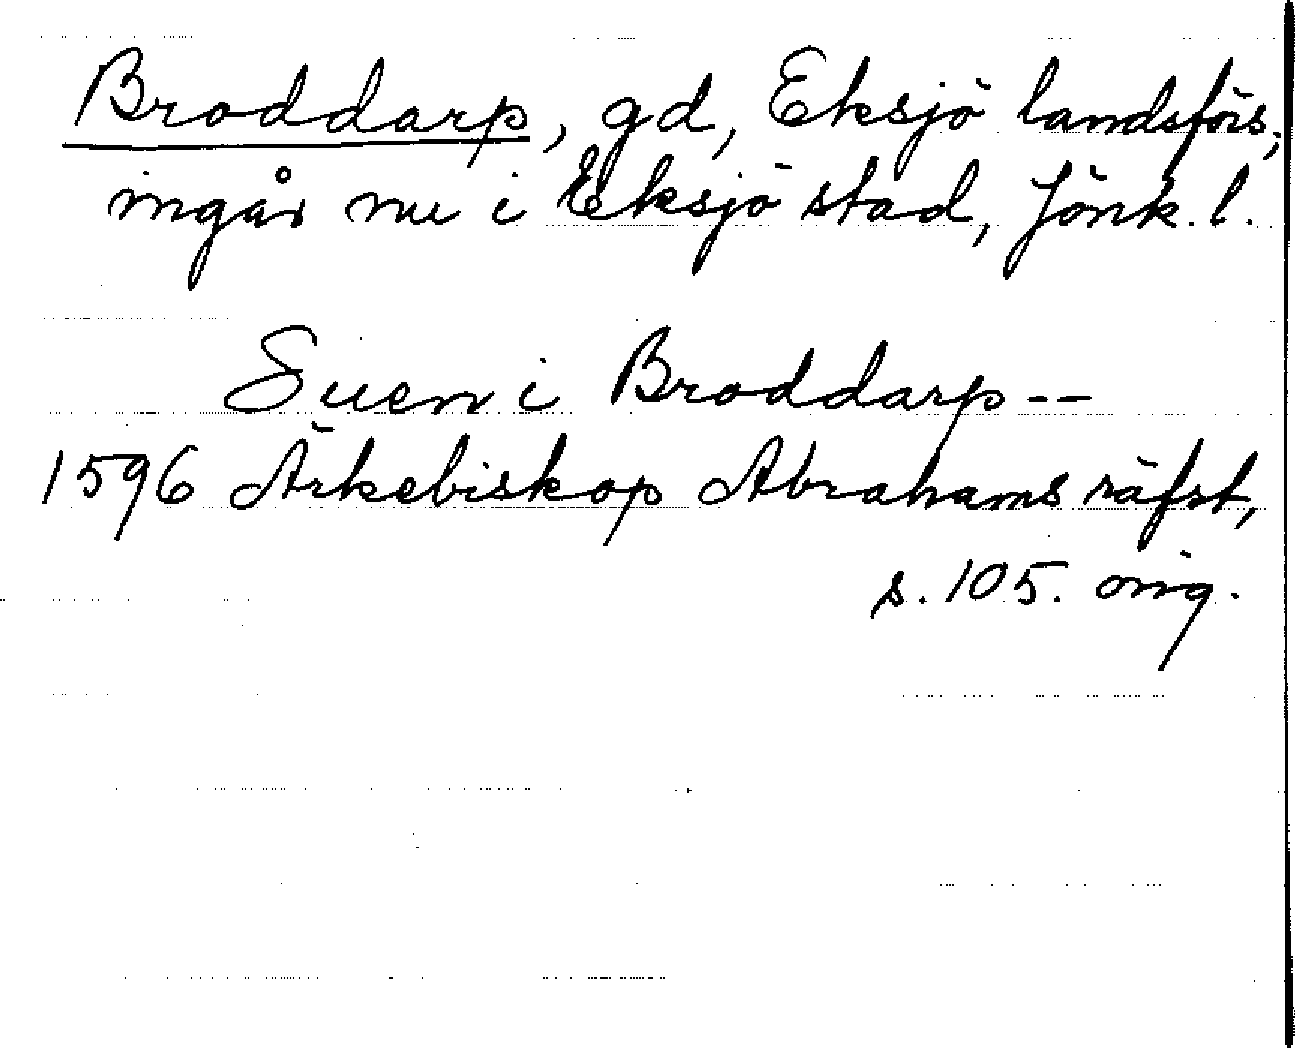 Broddarp, gd, Eksjö landsförs;
ingår nu i Eksjö stad, Jönk. l.
Suen i Broddarp --
1596 Ärkebiskop Abrahams räfst,
s. 105. orig.